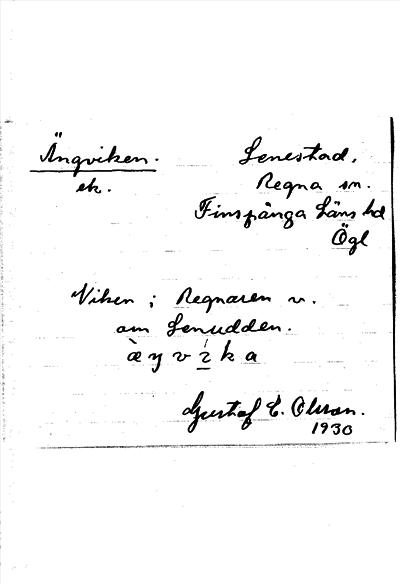 Ängviken.
ek.
Lenestad,
Regna sn.
Finspånga Läns hd
Ögl
Viken i Regnaren v.
om Lenudden.
Gustaf E. Olsson.
1930